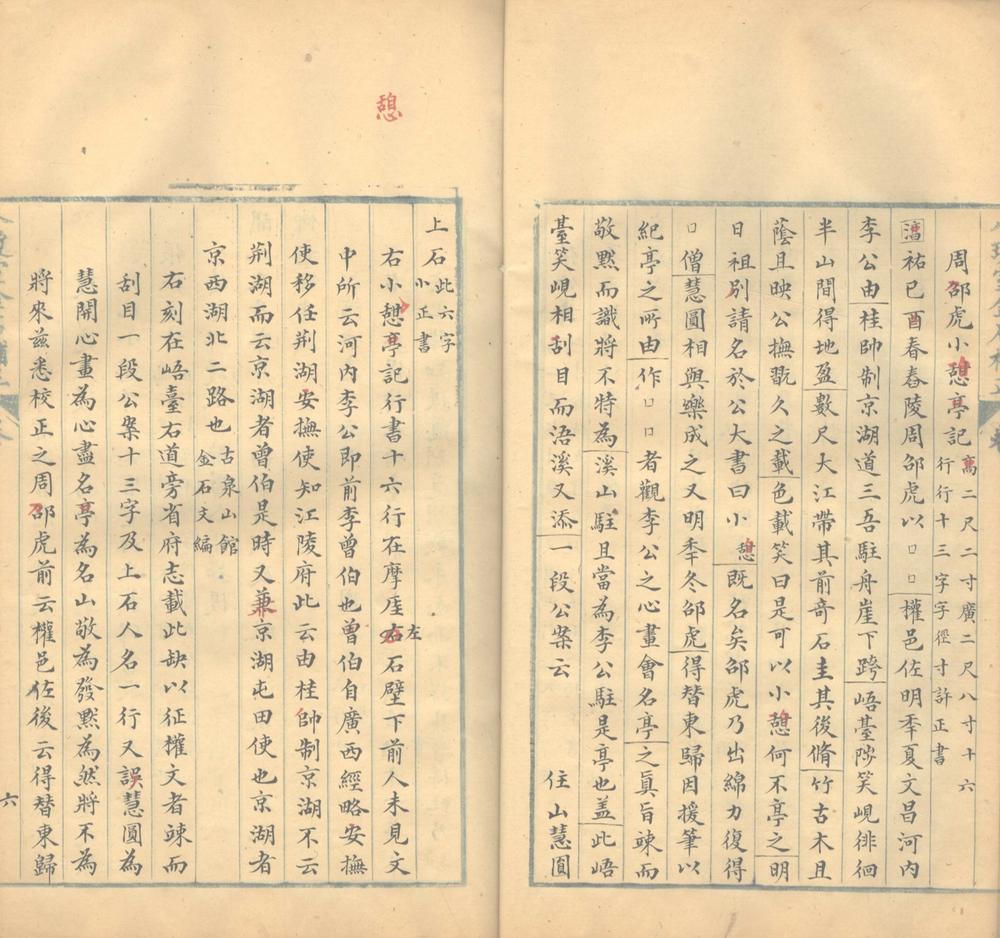 周邵虎小憩亭記高二尺二寸廣二尺八寸十六行行十三字字徑寸許正書
祐己酉春舂陵周邵虎以□□權邑佐明秊夏文昌河內
李公由桂帥制京湖道三吾駐舟崖下跨峿臺陟笑峴徘徊
半山間得地盈數尺大江帶其前奇石圭其後脩竹古木且
蔭且映公撫翫久之載色載笑曰是可以小憩何不亭之明
日祖別請名於公大書曰小憩既名矣邵虎乃出綿力復得
□僧慧圓相與樂成之又明秊冬邵虎得替東歸因援筆以
紀亭之所由作□□者觀李公之心畫會名亭之眞旨竦而
敬黙而識將不特為溪山駐且當為李公駐是亭也盖此峿
臺笑峴相刮目而浯溪又添一段公案云　住山慧圓
憩
上石此六字小正書
右小憩亭記行書十六行在摩厓右左石壁下前人未見文
中所云河內李公即前李曾伯也曾伯自廣西經略安撫
使移任荆湖安撫使知江陵府此云由桂帥制京湖不云
荆湖而云京湖者曾伯是時又兼京湖屯田使也京湖者
京西湖北二路也古泉山館金石文編
右刻在峿臺右道旁省府志載此缺以征權文者竦而
刮目一段公案十三字及上石人名一行又誤慧圓為
慧開心畫為心盡名亭為名山敬為發黙為然將不為
將來茲悉校正之周邵虎前云權邑佐後云得替東歸
六